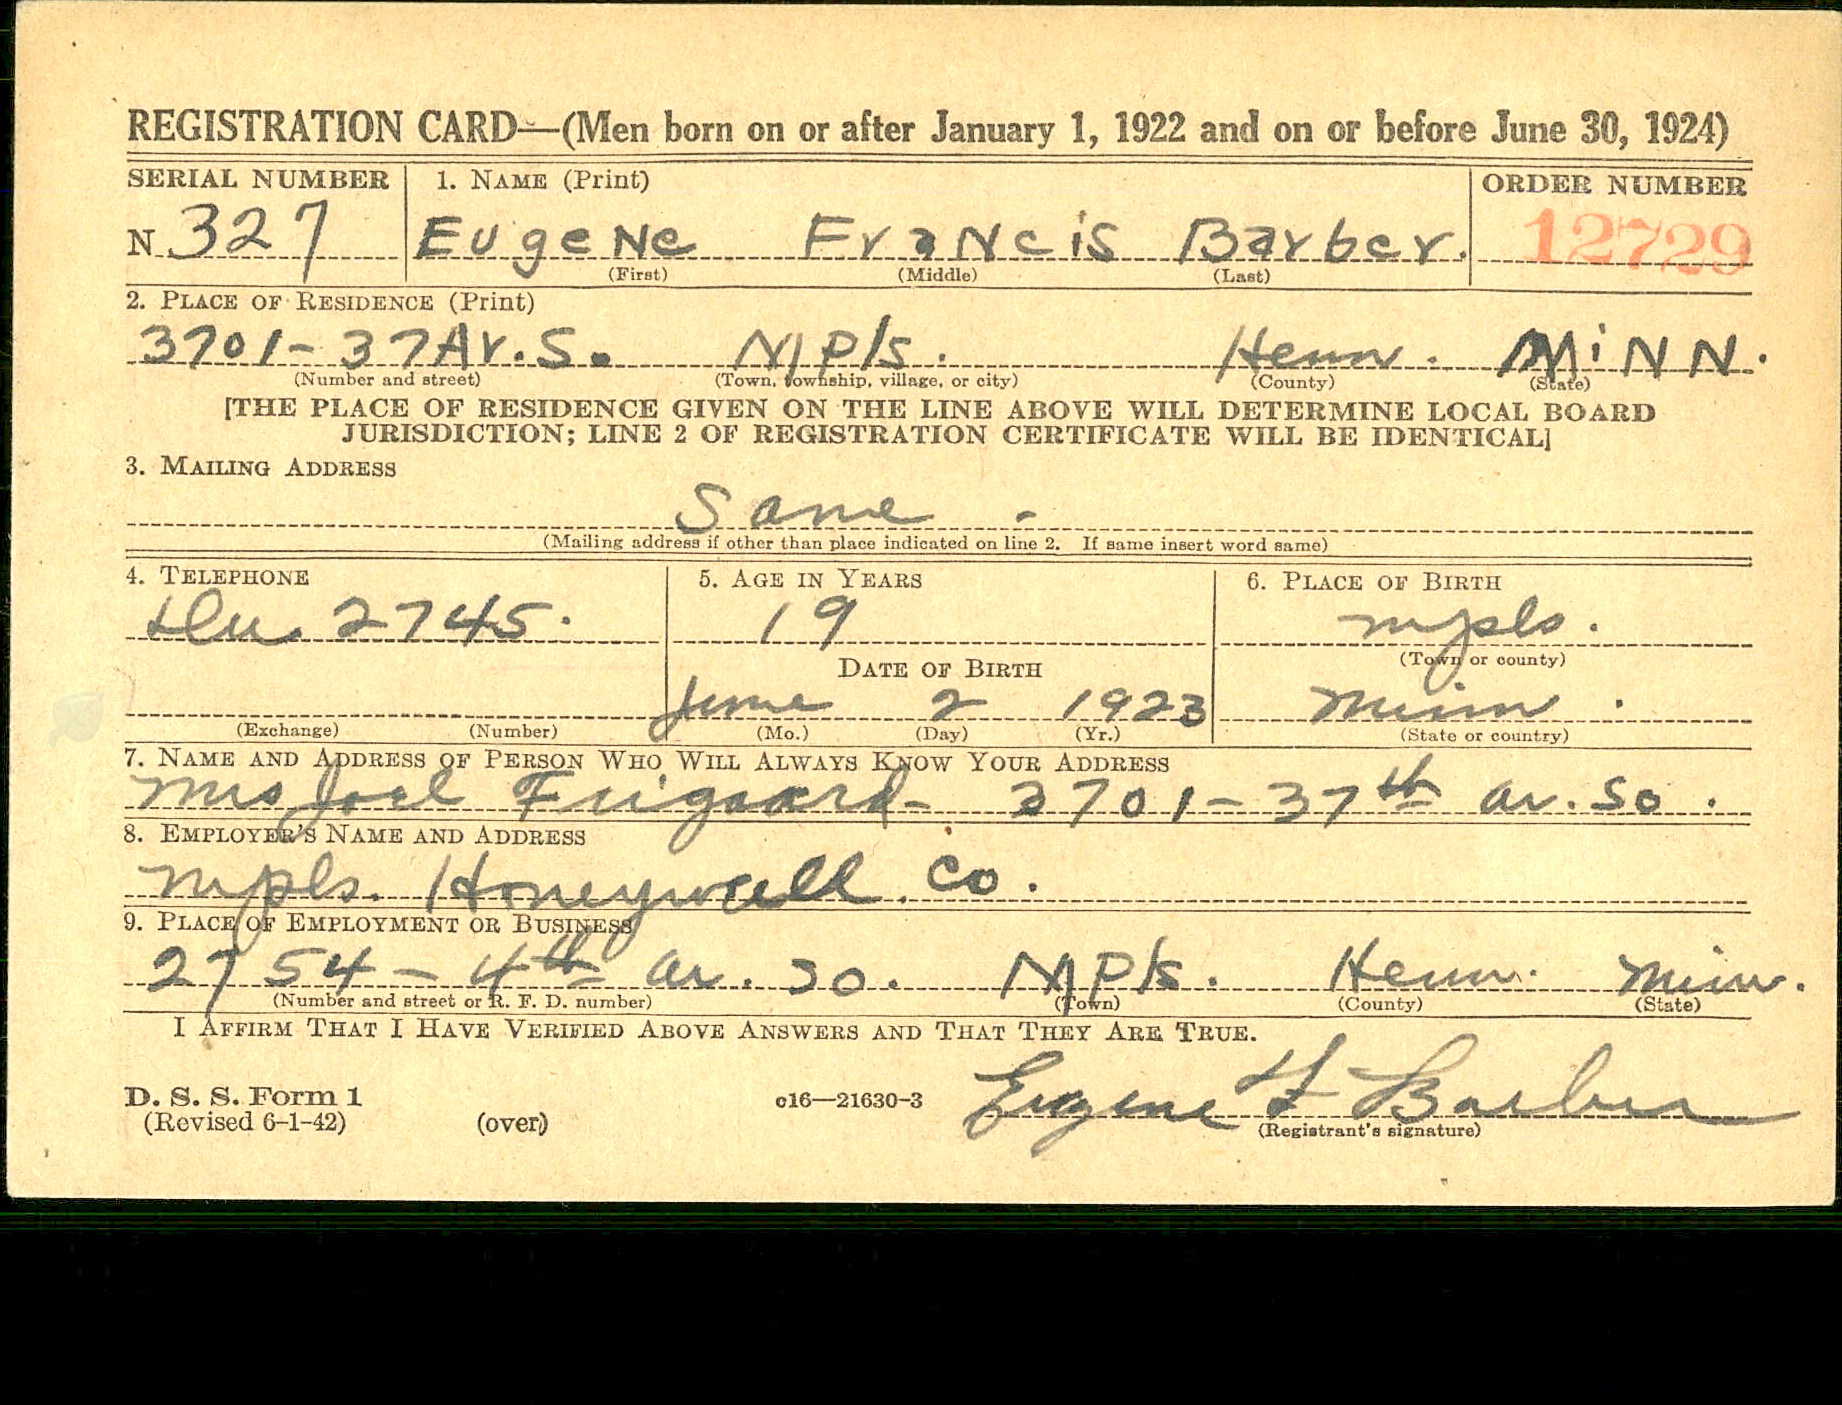 REGISTRATION CARD—(Men born on or after January 1, 1922 and on or before June 30, 1924)
SERIAL NUMBER 1. NAME (Print) ORDER NUMBER
N 327 Eugene Francis Barber. 12729
(First) (Middle) (Last)
2. PLACE OF RESIDENCE (Print)
3701- 37 Av. S. Mpls. Henn. MiNN.
(Number and street) (Town, township, village, or city) (County) (State)
[THE PLACE OF RESIDENCE GIVEN ON THE LINE ABOVE WILL DETERMINE LOCAL BOARD
JURISDICTION; LINE 2 OF REGISTRATION CERTIFICATE WILL BE IDENTICAL]
3. MAILING ADDRESS
Same -
(Mailing address if other than place indicated on line 2. If same insert word same)
4. TELEPHONE 5. AGE IN YEARS 6. PLACE OF BIRTH
Du. 2745. 19 mpls.
(Town or county)
DATE OF BIRTH
June 2 1923 Minn.
(Exchange) (Number) (Mo.) (Day) (Yr.) (State or country)
7. NAME AND ADDRESS OF PERSON WHO WILL ALWAYS KNOW YOUR ADDRESS
Mrs Joel - 3701- 37th av. So.
8. EMPLOYER'S NAME AND ADDRESS
Mpls. Honeywell. Co.
9. PLACE OF EMPLOYMENT OR BUSINESS
2754 - 4th av. So. Mpls. Henn. Minn.
(Number and street or R. F. D. number) (Town) (County) (State)
I AFFIRM THAT I HAVE VERIFIED ABOVE ANSWERS AND THAT THEY ARE TRUE.
D. S. S. Form 1
(Revised 6-1-42) (over) c16—21630-3 Eugene F Barber
(Registrant's signature)